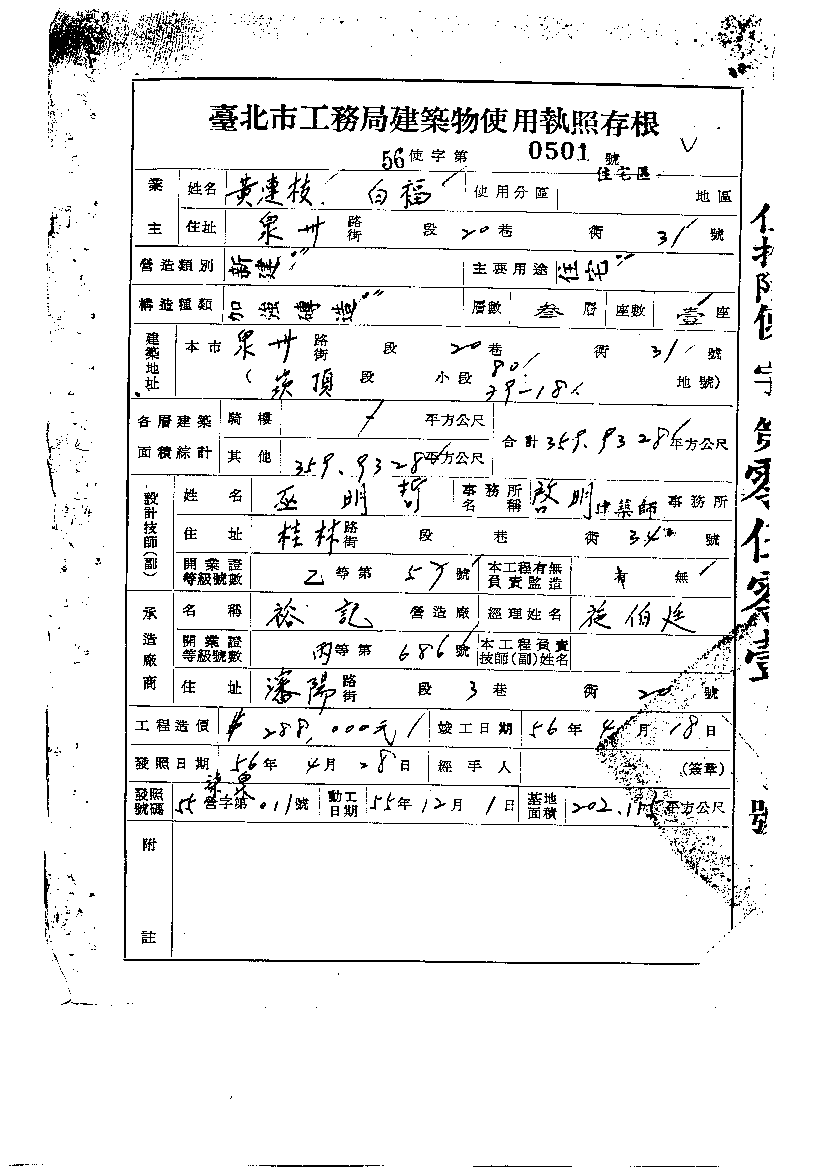 臺北市工務局建築物使用執照存根
56使字第 0501 號
業主 姓名 黃連枝、白福 使用分區 住宅區 地區
住址 泉州 路街 段 20巷 衖 31號
營造類別 新建 主要用途 住宅
構造種類 加強磚造 層數 叁層 座數 壹座
建築地址 本市 泉州 路街 段 20巷 衖 31號
(崁頂 段 小段 80 39-18 地號)
各層建築面積綜計 騎樓 / 平方公尺 合計 359.9328平方公尺
其他 359.9328平方公尺
設計技師(副) 姓名 巫明哲 事務所名稱 啓明建築師 事務所
住址 桂林 路街 段 巷 衖 34號
開業證等級號數 乙等第 57號 本工程有無負責監造 有 無
承造廠商 名稱 裕記 營造廠 經理姓名 施伯廷
開業證等級號數 丙等第 686號 本工程負責技師(副)姓名
住址 瀋陽 路街 段 3巷 衖 20號
工程造價 #288,000元 竣工日期 56年 4月 18日
發照日期 56年 4月 28日 經手人 (簽章)
發照號碼 55 營字第 011號 動工日期 55年 12月 1日 基地面積 202.115平方公尺
附註
使字第零伍零壹號